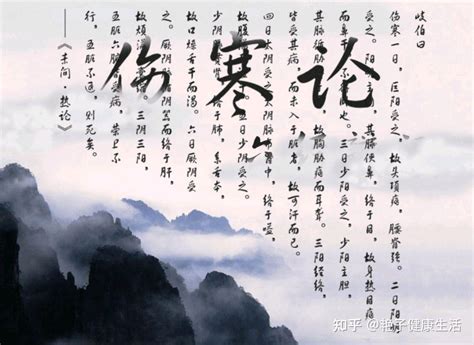 伤寒论
岐伯曰
伤寒一日，巨阳受之，故头项痛，腰脊强。二日阳明
受之。阳主肉，其脉侠鼻，络于目，故身热目疼
而鼻干，不得卧也。三日少阳受之，少阳主胆，
其脉循胁络于耳，故胸胁痛而耳聋。三阳经络，
皆受其病，而未入于脏者，故可汗而已。
四日太阴受之，太阴脉布胃中，络于嗌，
故腹满而嗌干。五日少阴受之，
少阴脉贯肾，络于肺，系舌本，
故口燥舌干而渴。六日厥阴受
之。厥阴脉循阴器而络于肝，
故烦满而囊缩。三阴三阳，
五脏六腑皆受病，荣卫不
行，五脏不通，则死矣。
——《素问·热论》
知乎 @艳子健康生活